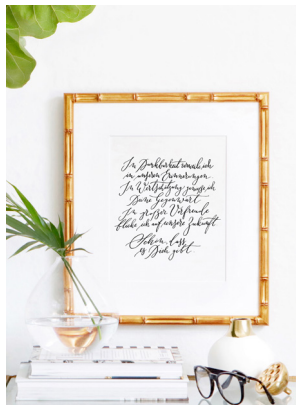 In Dankbarkeit schwelge ich
in unseren Erinnerungen.
In Wertschätzung genieße ich
Deine Gegenwart
In großer Vorfreude
blicke ich auf unsere Zukunft
Schön, dass
es Dich gibt